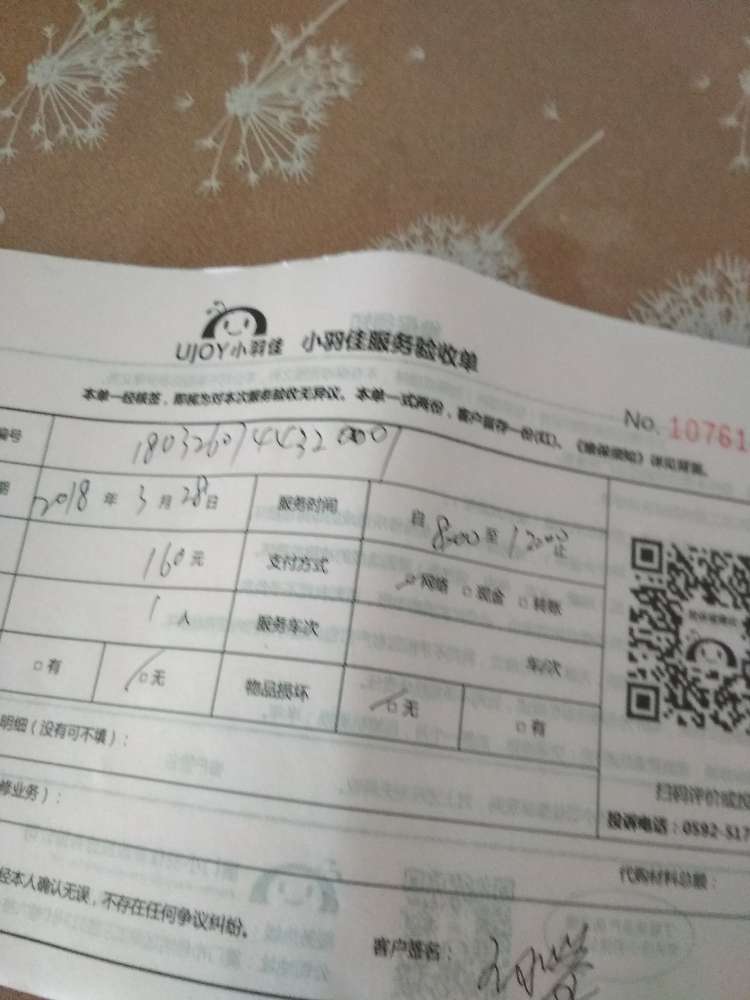 UJOY小羽佳 小羽佳服务验收单
本单一经核签，即视为对本次服务验收无异议。本单一式两份，客户留存一份(红)。《维保须知》详见背面。
No. 10761
编号 18032607443200001
期 2018年3月28日 服务时间 自8:00至12:00止
160元 支付方式 网络 现金 转账
1人 服务车次 车/次
有 无 物品损坏 无 有
扫码评价或投
明细（没有可不填）：
投诉电话：0592-517
修业务）：
代购材料总额：
经本人确认无误，不存在任何争议纠纷。
客户签名：